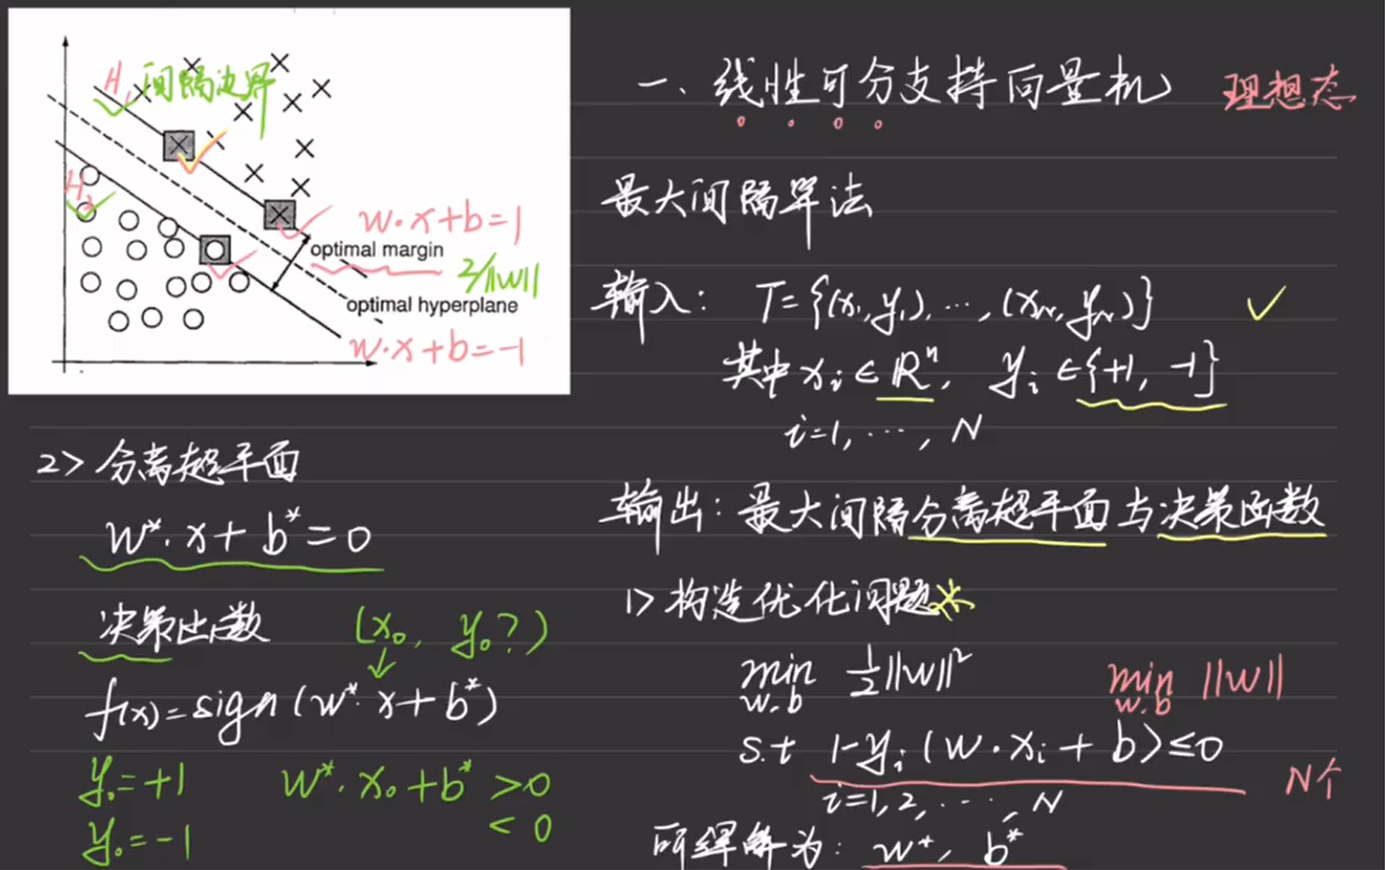 H₁ 间隔边界
H₂
w·x+b=1
optimal margin
2/||w||
optimal hyperplane
w·x+b=-1
一、线性可分支持向量机 理想态
最大间隔算法
输入: T={(x₁,y₁),···,(x_N,y_N)} ✓
其中 xᵢ∈ℝⁿ, yᵢ∈{+1, -1}
i=1, ···, N
输出: 最大间隔分离超平面与决策函数
1> 构造优化问题*
min ½||w||² min ||w||
w.b w.b
s.t 1-yᵢ(w·xᵢ+b)≤0
N个
i=1,2,···,N
所得解为: w*, b*
2> 分离超平面
w*·x+b*=0
决策函数 (x₀, y₀?)
↓
f(x)=sign(w*·x+b*)
y₀=+1 w*·x₀+b* >0
y₀=-1 <0